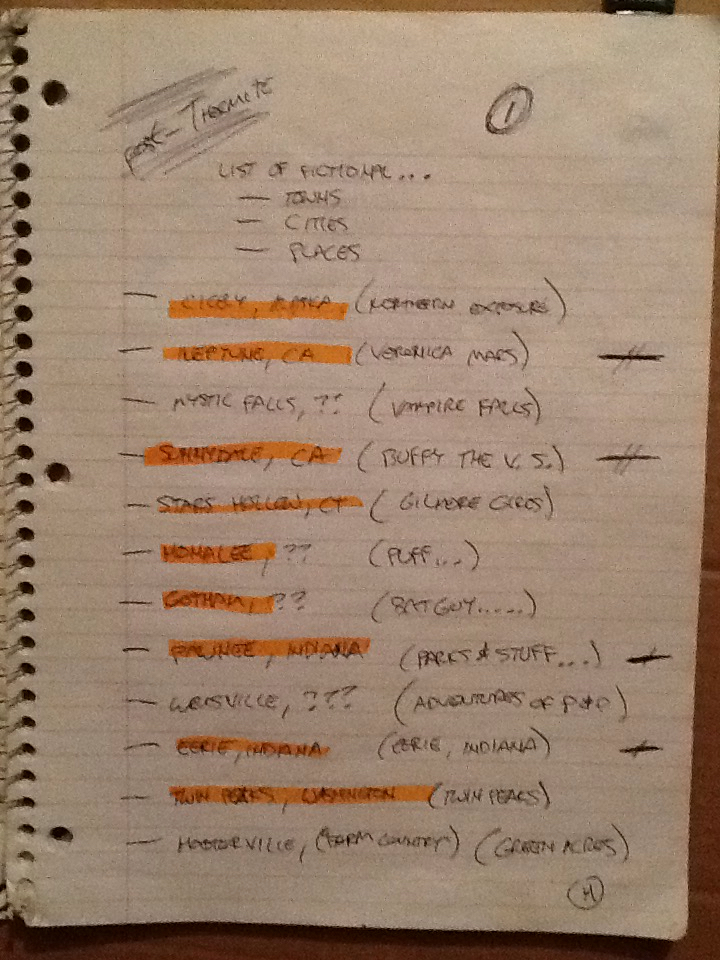 POST-THERMITE
1
LIST OF FICTIONAL...
— TOWNS
— CITIES
— PLACES
— CICELY, ALASKA (NORTHERN EXPOSURE)
— NEPTUNE, CA (VERONICA MARS)
— MYSTIC FALLS, ?? (VAMPIRE FALLS)
— SUNNYDALE, CA (BUFFY THE V. S.)
— STARS HOLLOW, CT (GILMORE GIRLS)
— HONALEE, ?? (PUFF...)
— GOTHAM, ?? (BAT GUY.....)
— PAWNEE, INDIANA (PARKS & STUFF...)
— WELLSVILLE, ??? (ADVENTURES OF P&P)
— EERIE, INDIANA (EERIE, INDIANA)
— TWIN PEAKS, WASHINGTON (TWIN PEAKS)
— HOOTERVILLE, ("FARM COUNTRY") (GREEN ACRES)